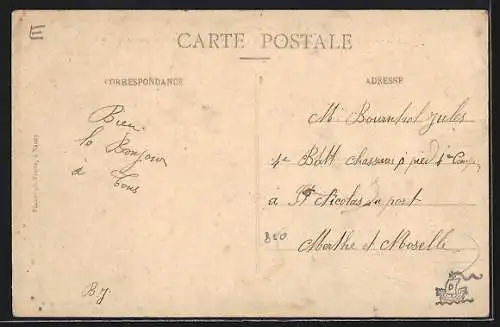 E
CARTE POSTALE
CORRESPONDANCE
ADRESSE
Bien
le Bonjour
à Tous
B J.
Mr Bournhol Jules
4e Batt chasseurs à pied 4e Comp
a St Nicolas du port
Merthe et Moselle